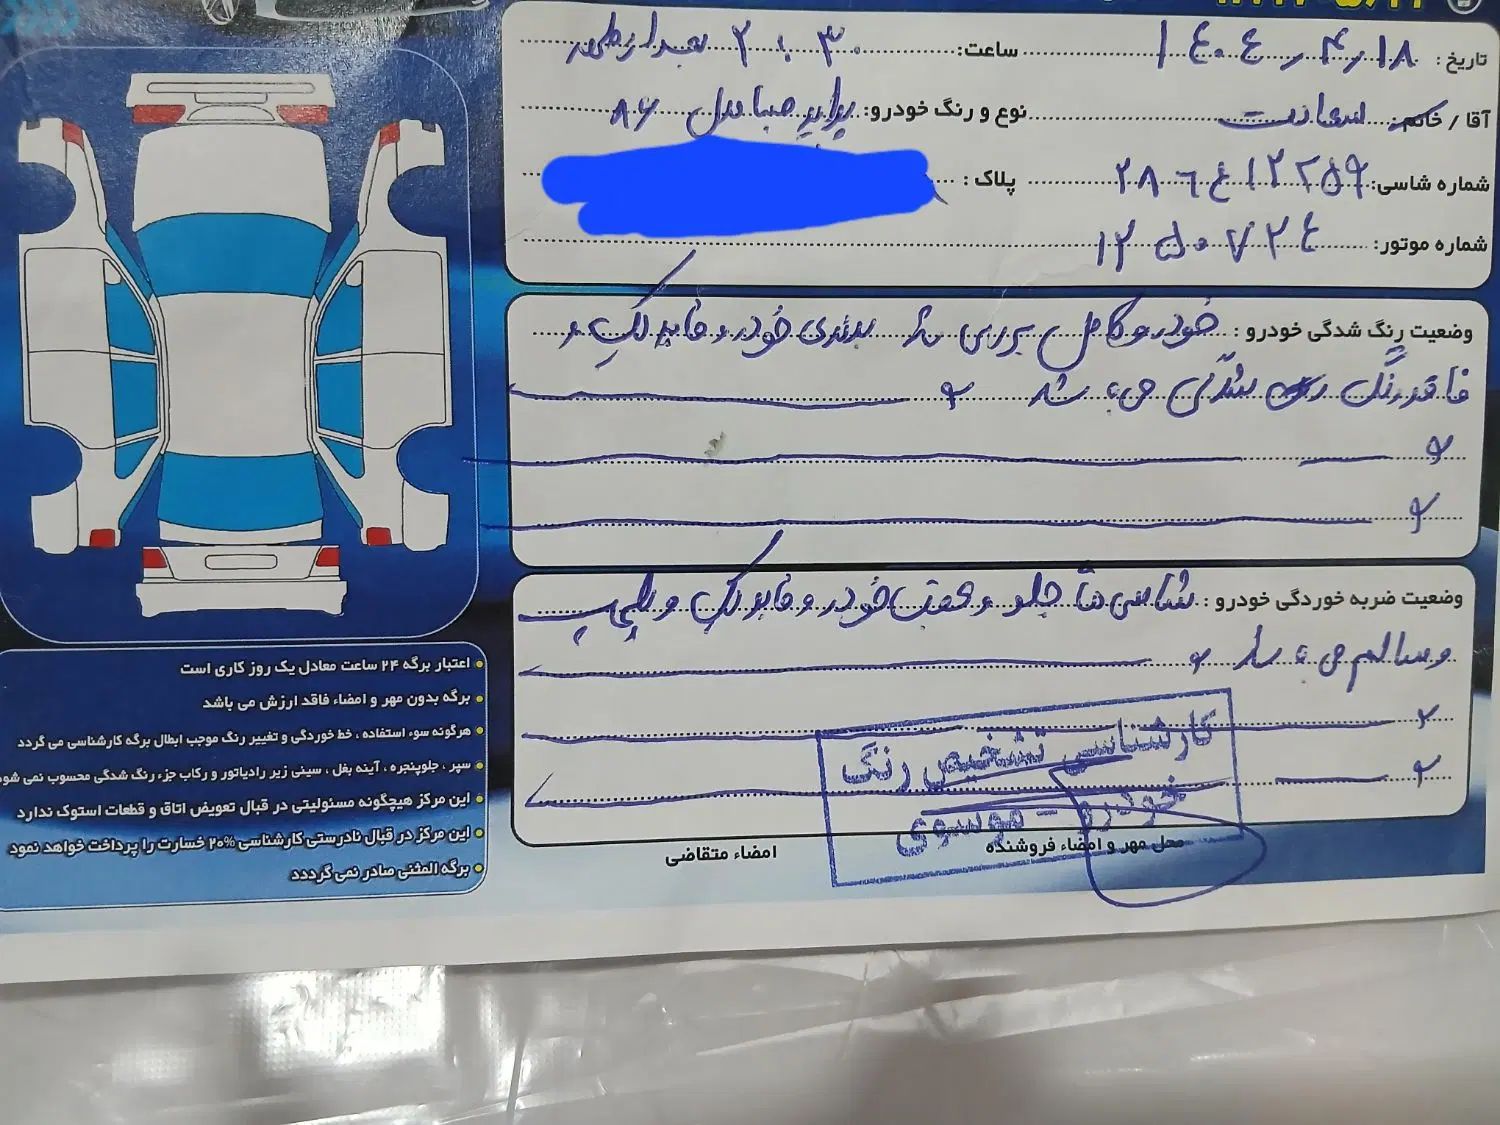 تاریخ: ۱۴۰۴/۴/۱۸ ساعت: ۲:۳۰ بعدازظهر
آقا / خانم: سعادت نوع و رنگ خودرو: پراید صبا مدل ۸۶
شماره شاسی: پلاک:
شماره موتور:
وضعیت رنگ شدگی خودرو: خودرو کامل بررسی شد بدنه‌ی خودرو فابریک و
فاقد رنگ شدگی می باشد
وضعیت ضربه خوردگی خودرو: شاسی های جلو و عقب خودرو فابریک و پلمپ
و سالم می باشد
کارشناسی تشخیص رنگ
خودرو - موسوی
محل مهر و امضاء فروشنده
امضاء متقاضی
اعتبار برگه ۲۴ ساعت معادل یک روز کاری است
برگه بدون مهر و امضاء فاقد ارزش می باشد
هرگونه سوء استفاده ، خط خوردگی و تغییر رنگ موجب ابطال برگه کارشناسی می گردد
سپر ، جلوپنجره ، آینه بغل ، سینی زیر رادیاتور و رکاب جزء رنگ شدگی محسوب نمی شود
این مرکز هیچگونه مسئولیتی در قبال تعویض اتاق و قطعات استوک ندارد
این مرکز در قبال نادرستی کارشناسی ۲۰% خسارت را پرداخت خواهد نمود
برگه المثنی صادر نمی گرددد